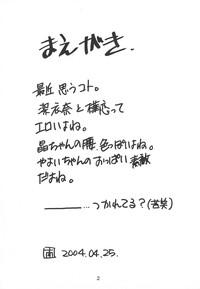 まえがき.
最近思うコト。
梨衣奈と構応って
エロいよね。
晶ちゃんの腰、色っぽいよね。
やよいちゃんのおっぱい素敵
だよね。
―――…つかれてる?(苦笑)
2004.04.25.
2